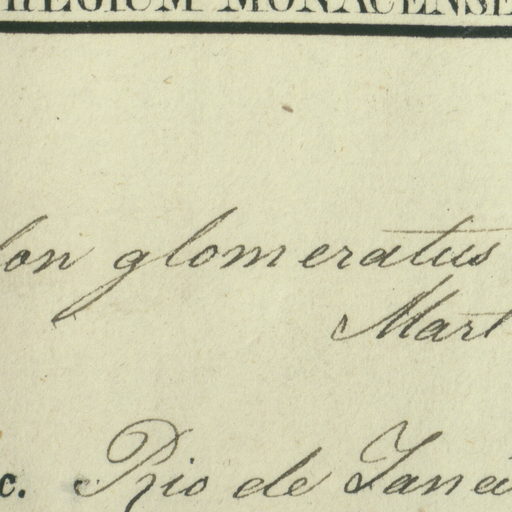 REGIUM MONACENSE
lon glomeratus
Mart
c. Rio de Jane